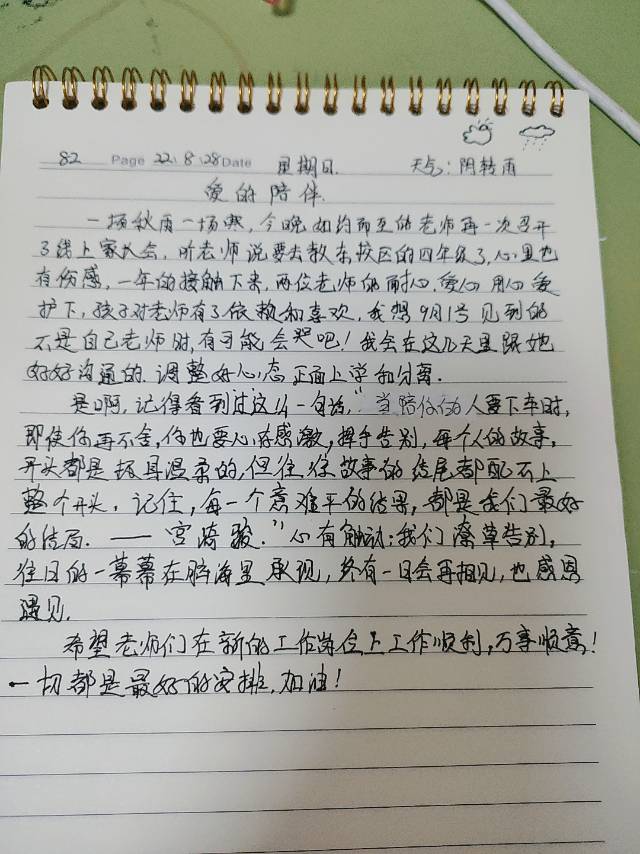 82 Page 22.8.28 Date 星期日. 天气:阴转雨
爱的陪伴.
一场秋雨一场寒,今晚如约而至的老师再一次召开
了线上家长会,听老师说要去教东校区的四年级了,心里也
有伤感,一年的接触下来,两位老师的耐心,爱心,用心爱
护下,孩子对老师有了依赖和喜欢,我想9月1号见到的
不是自己老师时,有可能会哭吧!我会在这几天里跟她
好好沟通的.调整好心态正面上学和分离.
是啊,记得看到过这么一句话,"当陪你的人要下车时,
即使你再不舍,你也要心存感激,挥手告别,每个人的故事,
开头都是极具温柔的,但往往故事的结尾都配不上
整个开头,记住,每一个意难平的结果,都是我们最好
的结局.——宫崎骏."心有触动:我们潦草告别,
往日的一幕幕在脑海里重现,终有一日会再相见,也感恩
遇见.
希望老师们在新的工作岗位上工作顺利,万事顺意!
一切都是最好的安排,加油!